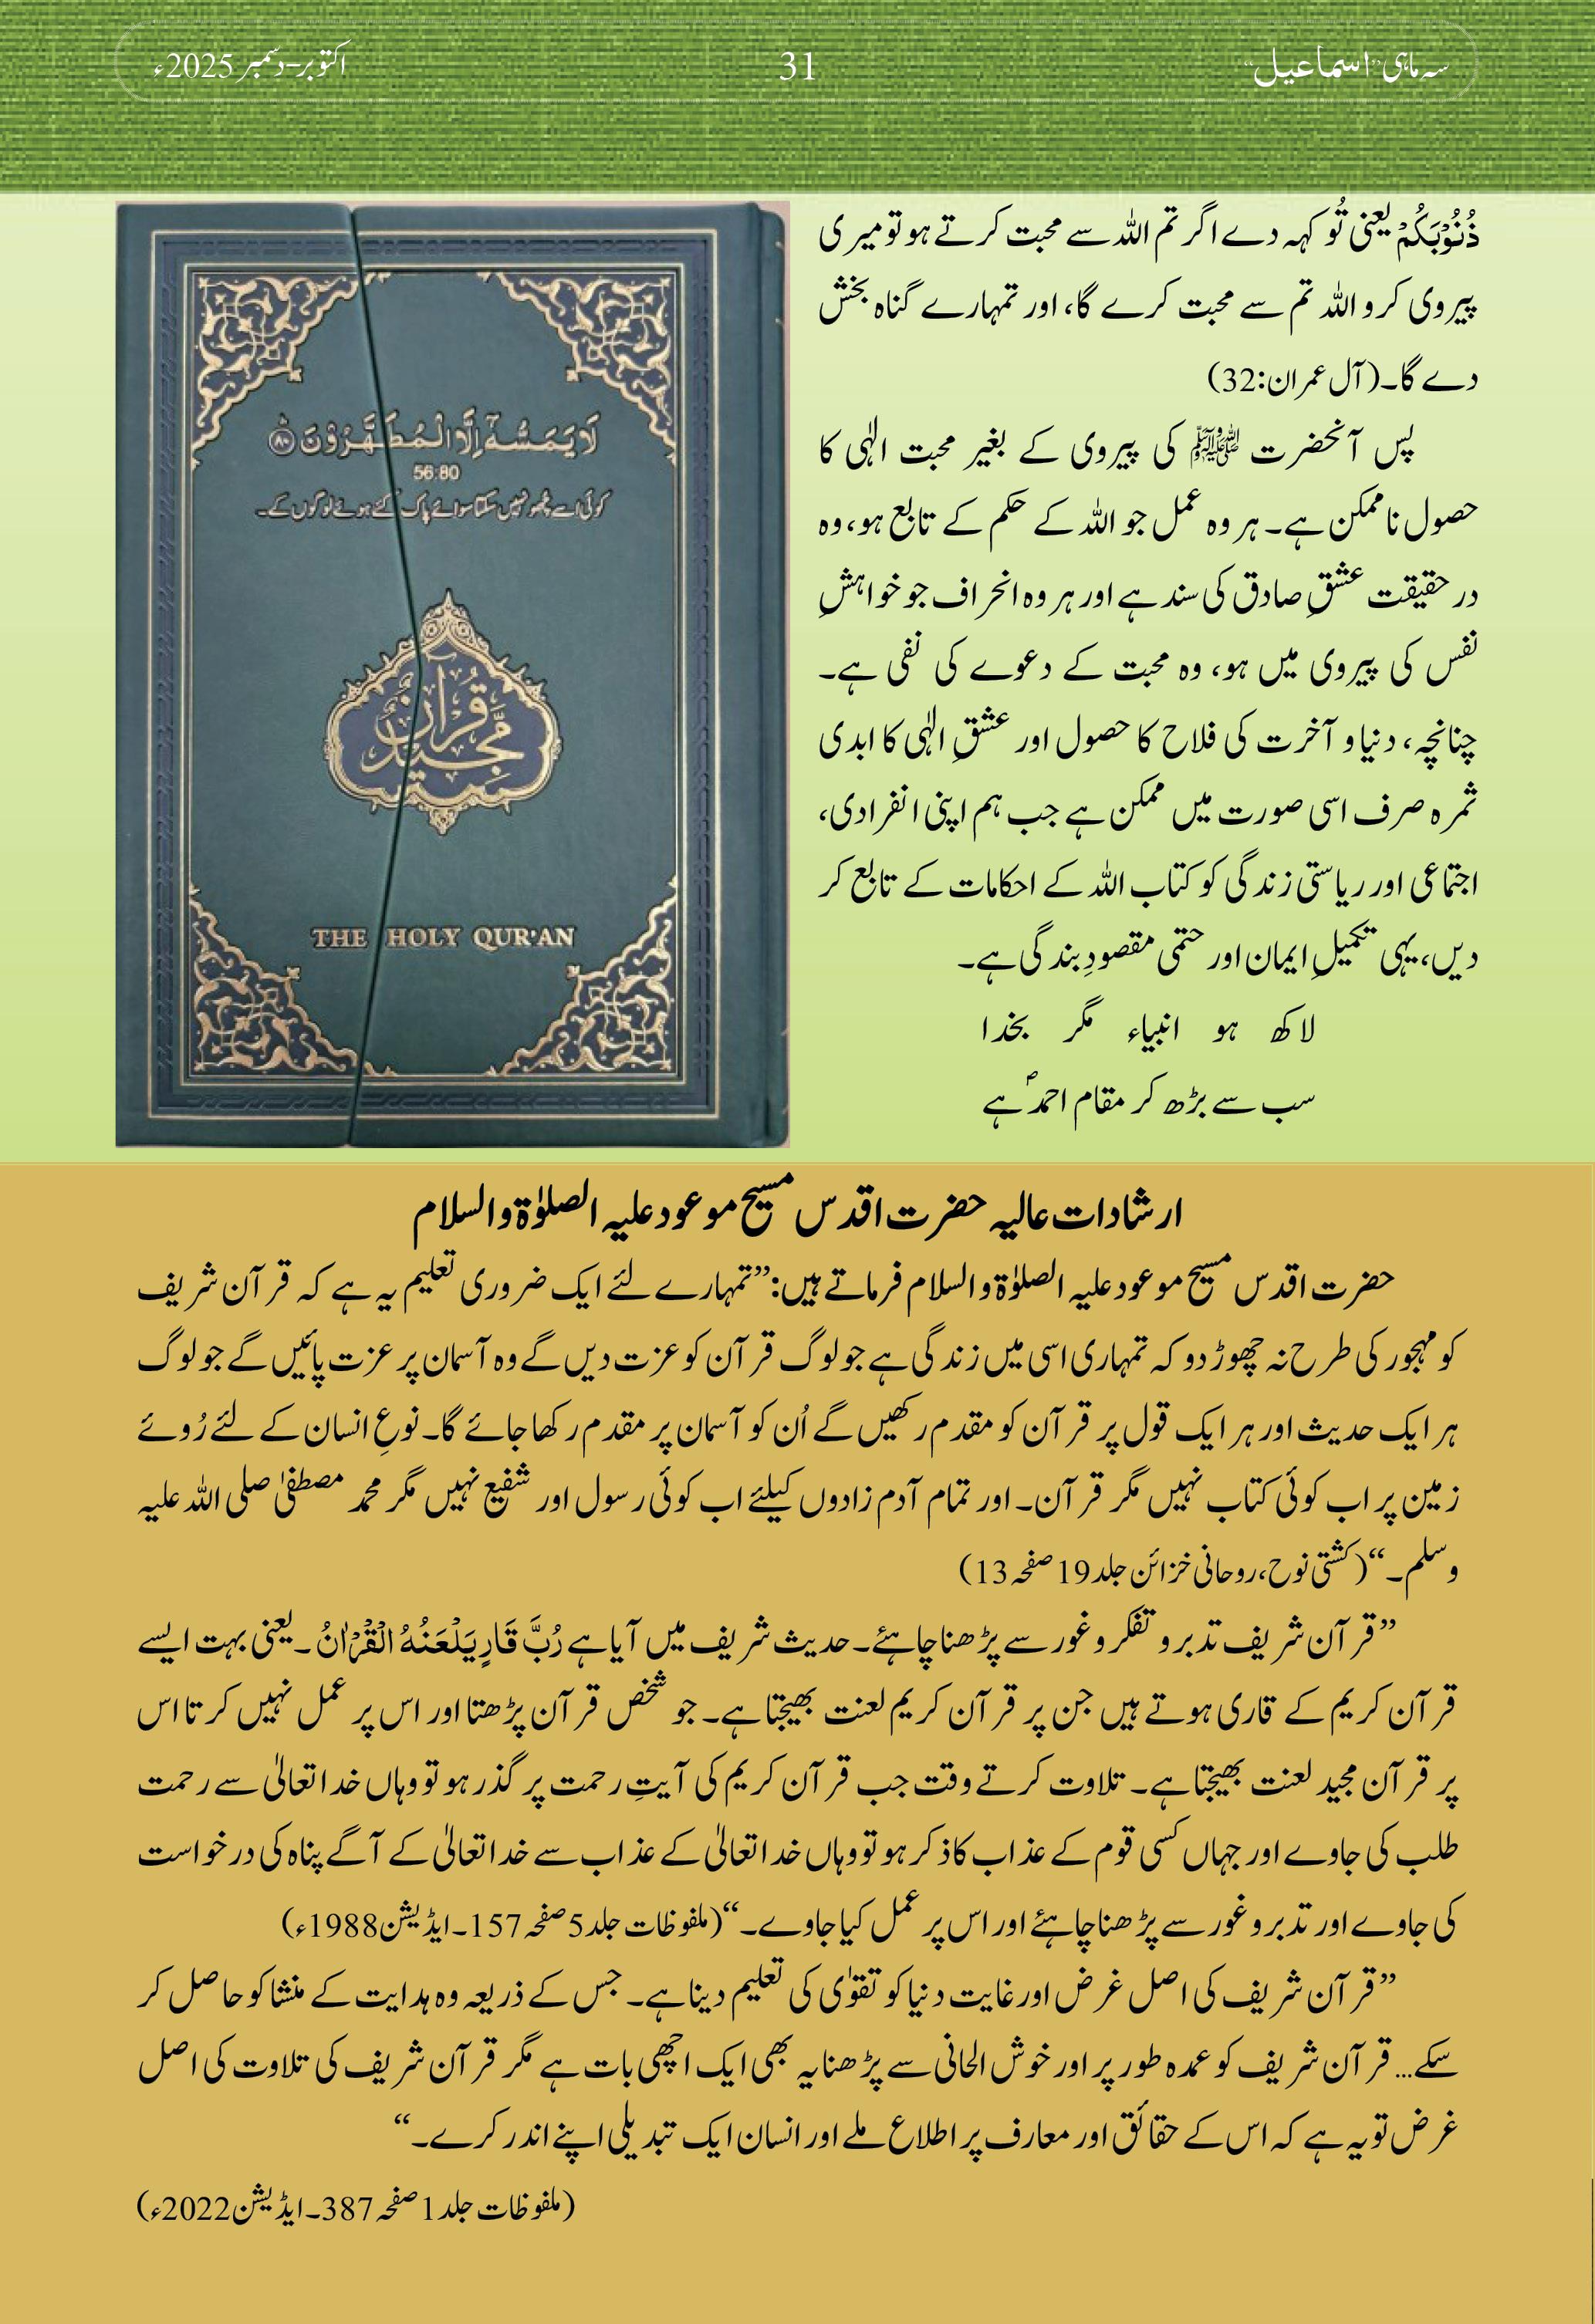 سہ ماہی ”اسماعیل“
31
اکتوبر–دسمبر 2025ء
ذُنُوْبَكُمْ یعنی تُو کہہ دے اگر تم اللہ سے محبت کرتے ہو تو میری
پیروی کرو اللہ تم سے محبت کرے گا، اور تمہارے گناہ بخش
دے گا۔(آل عمران:32)
پس آنحضرت ﷺ کی پیروی کے بغیر محبت الٰہی کا
حصول ناممکن ہے۔ ہر وہ عمل جو اللہ کے حکم کے تابع ہو، وہ
در حقیقت عشقِ صادق کی سند ہے اور ہر وہ انحراف جو خواہشِ
نفس کی پیروی میں ہو، وہ محبت کے دعوے کی نفی ہے۔
چنانچہ، دنیا و آخرت کی فلاح کا حصول اور عشقِ الٰہی کا ابدی
ثمرہ صرف اسی صورت میں ممکن ہے جب ہم اپنی انفرادی،
اجتماعی اور ریاستی زندگی کو کتاب اللہ کے احکامات کے تابع کر
دیں، یہی تکمیلِ ایمان اور حتمی مقصودِ بندگی ہے۔
لاکھ ہو انبیاء مگر بخدا
سب سے بڑھ کر مقام احمدؐ ہے
لَا یَمَسُّہٗۤ اِلَّا الْمُطَہَّرُوْنَ ﴿۸۰﴾
56:80
کوئی اسے چُھو نہیں سکتا سوائے پاک کئے ہوئے لوگوں کے۔
قُرْآنٌ
مَّجِیْدٌ
THE HOLY QUR'AN
ارشادات عالیہ حضرت اقدس مسیح موعود علیہ الصلوٰۃ والسلام
حضرت اقدس مسیح موعود علیہ الصلوٰۃ والسلام فرماتے ہیں:”تمہارے لئے ایک ضروری تعلیم یہ ہے کہ قرآن شریف
کو مہجور کی طرح نہ چھوڑ دو کہ تمہاری اسی میں زندگی ہے جو لوگ قرآن کو عزت دیں گے وہ آسمان پر عزت پائیں گے جو لوگ
ہر ایک حدیث اور ہر ایک قول پر قرآن کو مقدم رکھیں گے اُن کو آسمان پر مقدم رکھا جائے گا۔ نوعِ انسان کے لئے رُوئے
زمین پر اب کوئی کتاب نہیں مگر قرآن۔ اور تمام آدم زادوں کیلئے اب کوئی رسول اور شفیع نہیں مگر محمد مصطفیٰ صلی اللہ علیہ
وسلم۔“(کشتی نوح، روحانی خزائن جلد19 صفحہ13)
”قرآن شریف تدبر و تفکر و غور سے پڑھنا چاہئے۔ حدیث شریف میں آیا ہے رُبَّ قَارٍ یَلْعَنُہُ الْقُرْاٰنُ۔ یعنی بہت ایسے
قرآن کریم کے قاری ہوتے ہیں جن پر قرآن کریم لعنت بھیجتا ہے۔ جو شخص قرآن پڑھتا اور اس پر عمل نہیں کرتا اس
پر قرآن مجید لعنت بھیجتا ہے۔ تلاوت کرتے وقت جب قرآن کریم کی آیتِ رحمت پر گذر ہو تو وہاں خدا تعالیٰ سے رحمت
طلب کی جاوے اور جہاں کسی قوم کے عذاب کا ذکر ہو تو وہاں خدا تعالیٰ کے عذاب سے خدا تعالیٰ کے آگے پناہ کی درخواست
کی جاوے اور تدبر و غور سے پڑھنا چاہئے اور اس پر عمل کیا جاوے۔“(ملفوظات جلد5 صفحہ157۔ ایڈیشن1988ء)
”قرآن شریف کی اصل غرض اور غایت دنیا کو تقوٰی کی تعلیم دینا ہے۔ جس کے ذریعہ وہ ہدایت کے منشا کو حاصل کر
سکے... قرآن شریف کو عمدہ طور پر اور خوش الحانی سے پڑھنا یہ بھی ایک اچھی بات ہے مگر قرآن شریف کی تلاوت کی اصل
غرض تو یہ ہے کہ اس کے حقائق اور معارف پر اطلاع ملے اور انسان ایک تبدیلی اپنے اندر کرے۔“
(ملفوظات جلد1 صفحہ387۔ ایڈیشن2022ء)